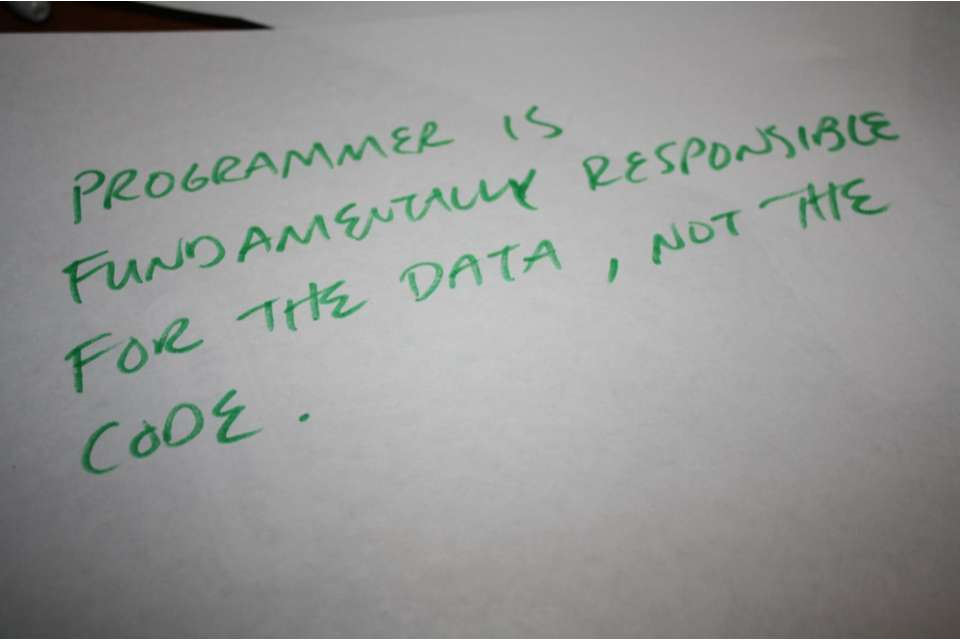 PROGRAMMER IS
FUNDAMENTALLY RESPONSIBLE
FOR THE DATA, NOT THE
CODE.